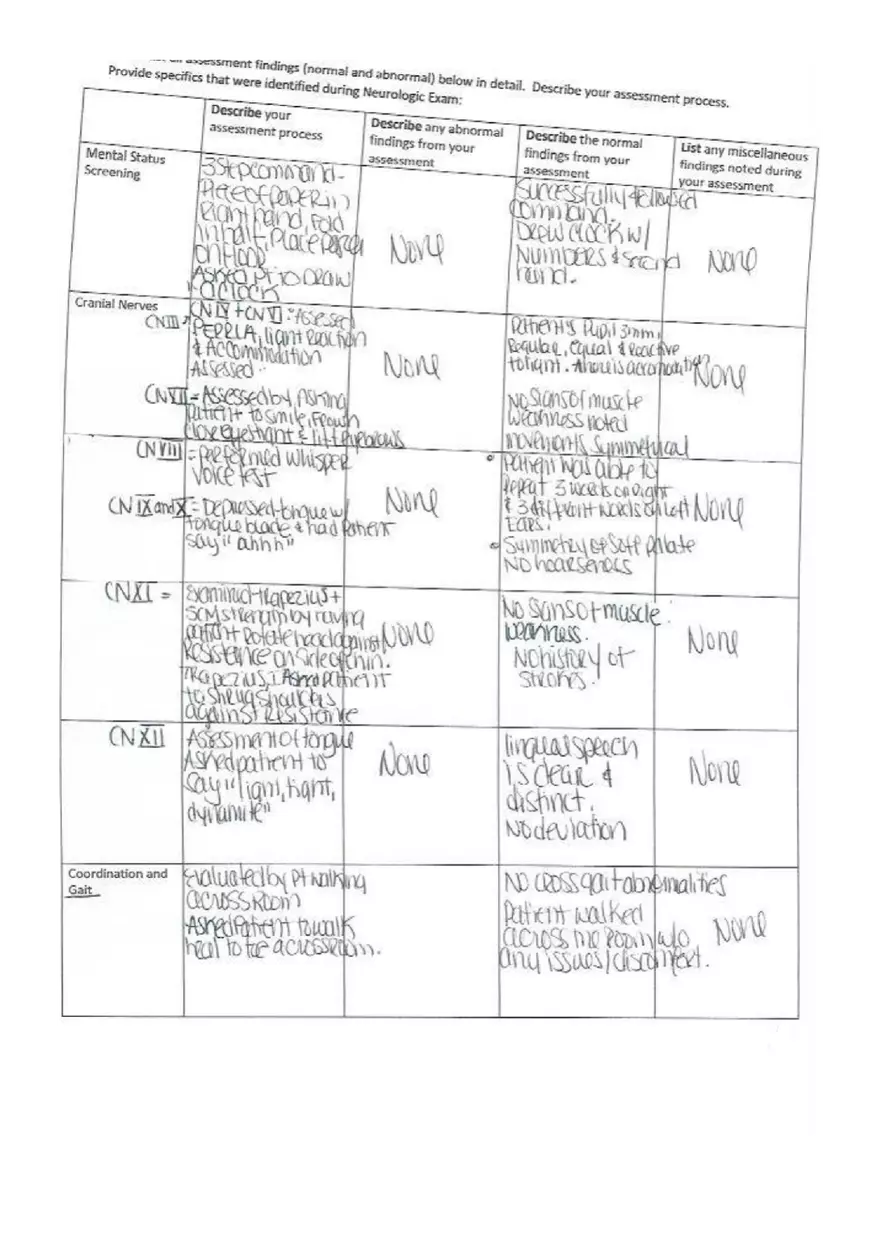 assessment findings (normal and abnormal) below in detail. Describe your assessment process.
Provide specifics that were identified during Neurologic Exam:
Describe your
assessment process
Describe any abnormal
findings from your
assessment
Describe the normal
findings from your
assessment
List any miscellaneous
findings noted during
your assessment
Mental Status
Screening
3 Step command -
Piece of paper in
Right hand, Fold
in half, Place paper
on floor
Asked Pt to Draw
a clock
None
Successfully followed
command.
Drew clock w/
Numbers & second
hand.
None
Cranial Nerves
CN III
CN IV + CN VI : Assessed
PERRLA, light Reaction
& Accommodation
Assessed
CN VII = Assessed by Asking
patient to smile, Frown
close eyes tight & lift eyebrows
None
Patient's Pupil 3mm,
Regular, Equal & Reactive
to light. There is
No Signs of muscle
Weakness noted
movements symmetrical
None
CN VIII = performed whisper
voice test
CN IX and X = Depressed tongue w/
tongue blade & had patient
say "ahhh"
None
Patient was able to
Repeat 3 words on right
& 3 different words on left
Ears.
Symmetry of soft palate
No hoarseness
None
CN XI = Examined trapezius +
SCM strength by having
patient rotate head against
Resistance on side of chin.
Trapezius: Asked patient
to shrug shoulders
against resistance
None
No signs of muscle
weakness.
No history of
strokes.
None
CN XII
Assessment of tongue
Asked patient to
say "light, tight,
dynamite"
None
lingual speech
is clear &
distinct.
No deviation
None
Coordination and
Gait
Evaluated by Pt walking
across Room
Asked Patient to walk
heal to toe across room.
No gross gait abnormalities
Patient walked
across the room w/o
any issues/discomfort.
None